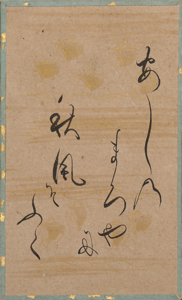 あしの
まろやに
秋風そ
ふく